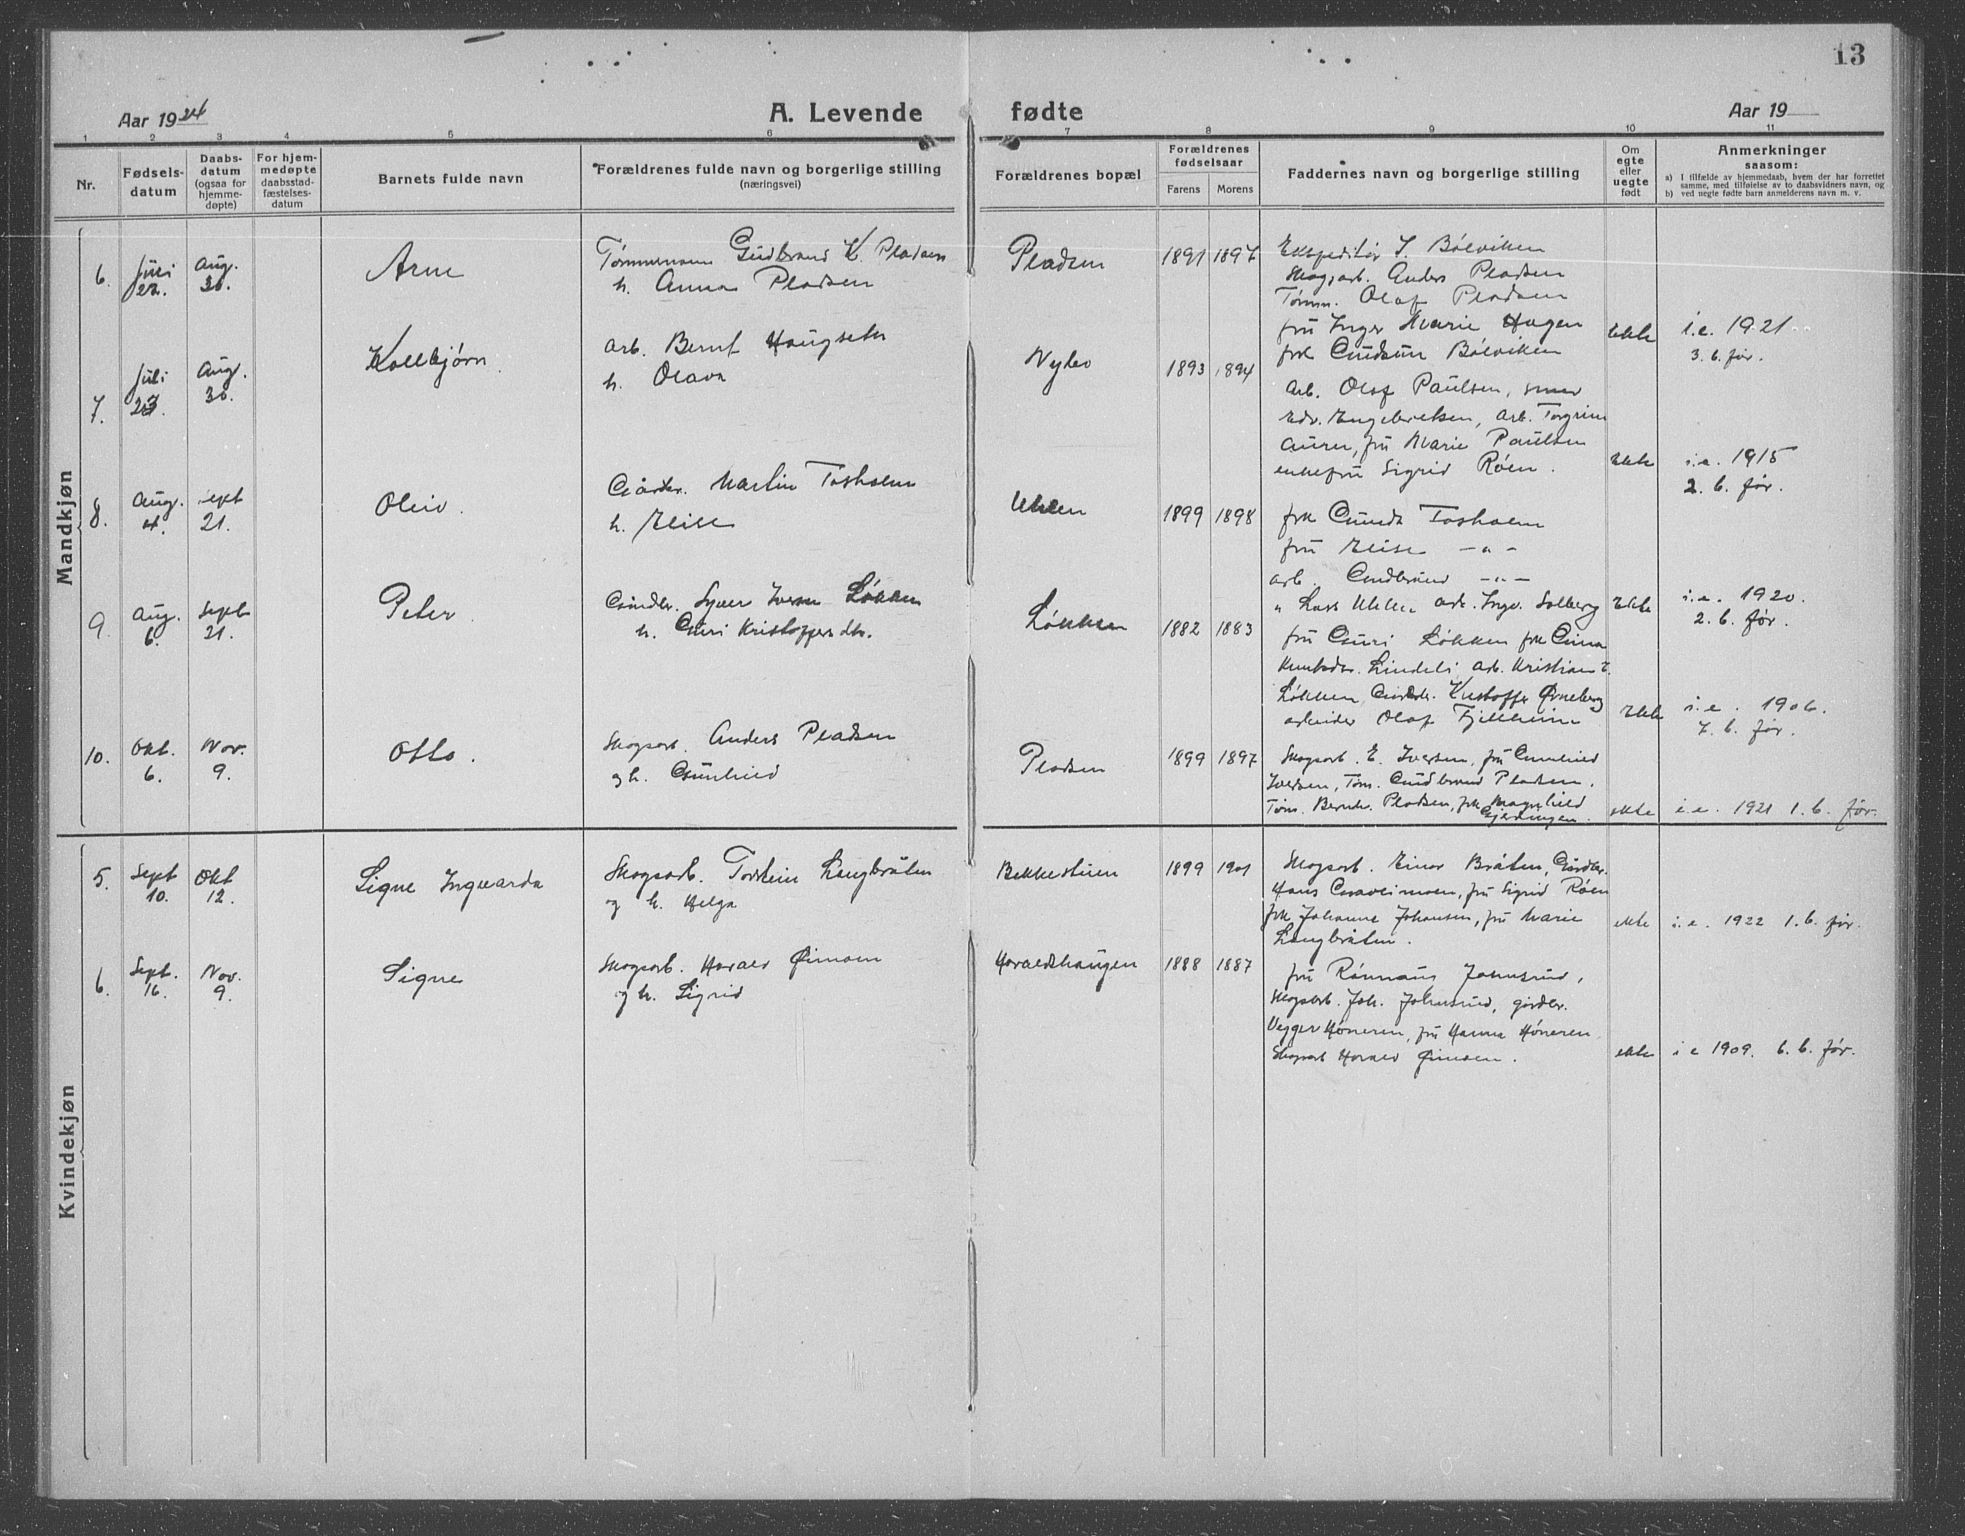 13
Aar 1924
A. Levende fødte
Aar 19
1 2 3 4 5 6 7 8 9 10 11
Nr.
Fødsels-
datum
Daabs-
datum
(ogsaa for
hjemme-
døpte)
For hjem-
medøpte
daabsstad-
fæstelses-
datum
Barnets fulde navn
Forældrenes fulde navn og borgerlige stilling
(næringsvei)
Forældrenes bopæl
Forældrenes
fødselsaar
Farens Morens
Faddernes navn og borgerlige stilling
Om
egte
eller
uegte
født
Anmerkninger
saasom:
a) I tilfælde av hjemmedaab, hvem der har forrettet
samme, med tilføielse av to daabsvidners navn, og
b) ved uegte fødte barn anmelderens navn m. v.
Mandkjøn
6. Juli 22. Aug. 30. Arne
Tømmermann Gudbrand K. Pladsen
h. Anna Pladsen
Pladsen 1891 1897
Ekspeditør Bølviken
Skogsarb. Anders Pladsen
Tømm. Olaf Pladsen
fru Inger Marie Hagen
frk Gudrun Bølviken
Ekte
i.e. 1921
3. b. før.
7. Juli 23. Aug. 30. Kolbjørn.
Arb. Bernt Haugseter
h. Olava
Nybo 1893 1894
Arb. Olof Paulsen,
Edv. Engebretsen, Arb. Torgrim
Auren, fru Marie Paulsen
enkefru Sigrid Røen.
Ekte
i.e. 1915
2. b. før.
8. Aug. 4. Sept 21. Oleiv.
Gårdbr. Martin Tosholm
h. Elise
Uhlen 1899 1898
frk Gunda Tosholm
fru Elise - " -
arb. Gudbrand - " -
" Lars Uhlen ark. Ingv. Solberg
Ekte
i.e. 1920.
2. b. før.
9. Aug. 6. Sept 21. Peter
Gårdbr. Syver Iversen Løkken
h. Guri Kristoffersdtr.
Løkken 1882 1883
fru Guri Løkken frk Gina
Lindeli arb. Kristian
Løkken, Gårdbr. Kristoffer Ørneberg
arbeider Olaf Fjellheim
Ekte
i.e. 1906.
7. b. før.
10. Okt. 6. Nov. 9. Otto.
Skogsarb. Anders Pladsen
og h. Gunhild
Pladsen 1899 1897
Skogsarb. E. Iversen, fru Gunhild
Iversen, Tøm. Gudbrand Pladsen.
Tøm. Bernh. Pladsen, frk Magnhild
Gjerdingen.
ekte
i.e. 1921 1. b. før.
Kvindekjøn
5. Sept 10. Okt 12. Signe Ingvarda
Skogsarb. Torstein Langbråten
og h. Helga
Bekkestuen 1899 1901
Skogsarb. Einar Bråten, Gårdbr.
Hans fru Sigrid Røen
frk Johanne Johansen, fru Marie
Langbråten.
ekte
i.e. 1922 1. b. før.
6. Sept. 16. Nov. 9. Signe
Skogsarb. Harald Øimoen
og h. Sigrid
Haraldshaugen 1888 1887
fru Rønnaug Johnsrud,
Skogsarb. Joh. Johnsrud, gårdbr.
Vegger Høneren, fru Hanna Høneren
Skogsarb Harald Øimoen.
ekte
i e 1909. 6. b. før.